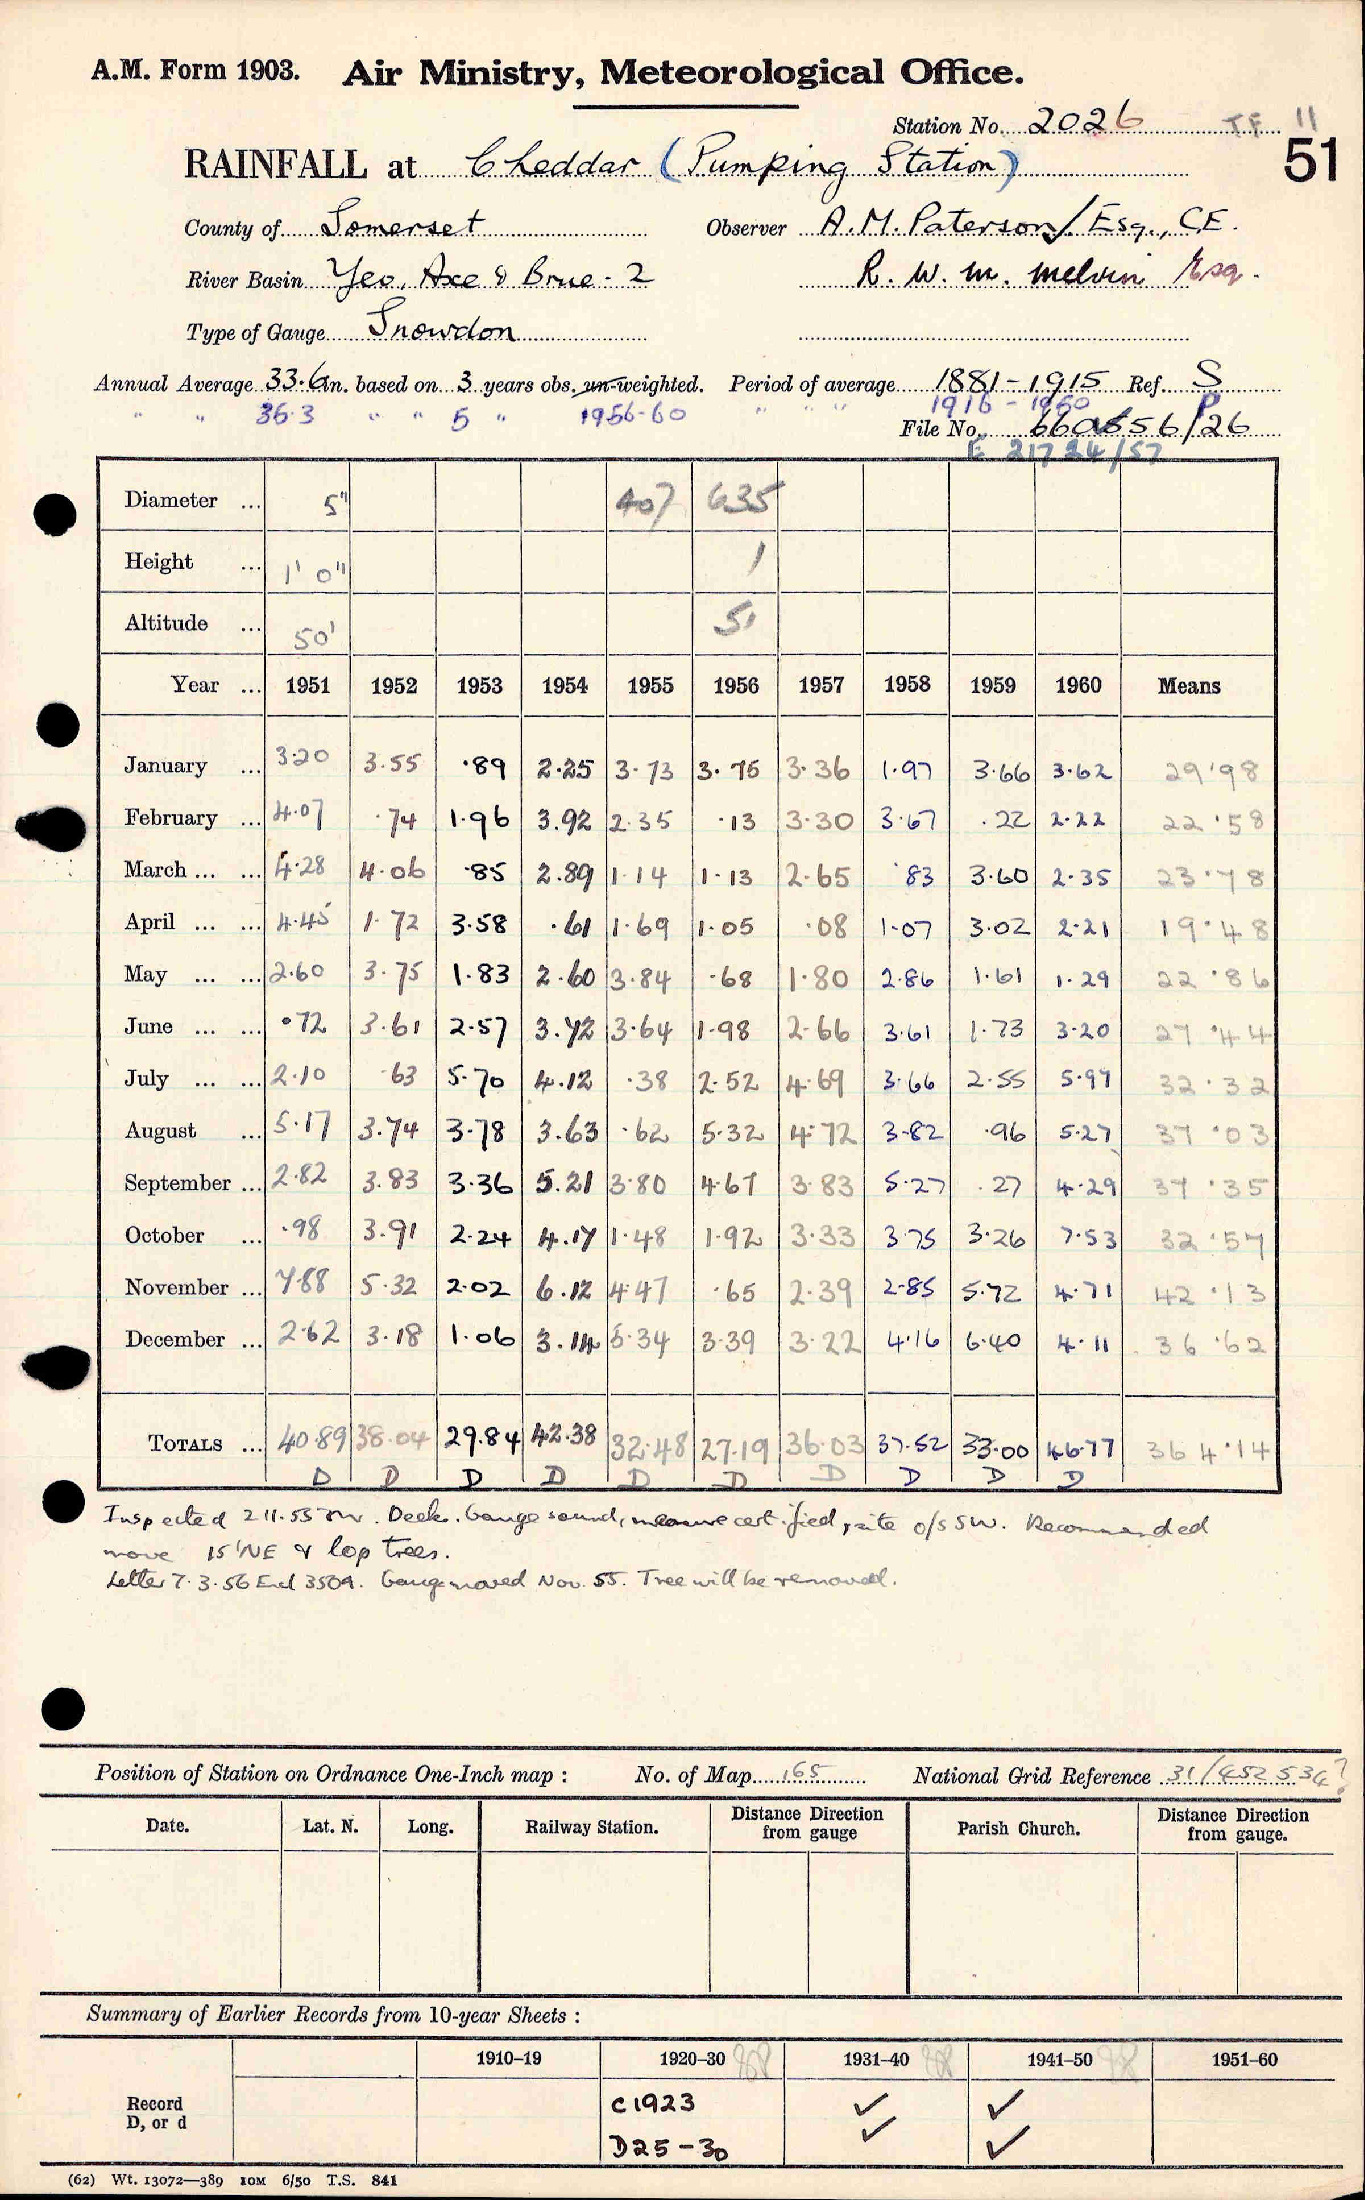 A.M. Form 1903. Air Ministry, Meteorological Office.
Station No. 2026 TF 11
RAINFALL at Cheddar (Pumping Station) 51
County of Somerset Observer A.M. Paterson, Esq., C.E.
River Basin Yeo, Axe & Brue - 2 R. W. M. Melvin Esq.
Type of Gauge Snowdon
Annual Average 33.6 in. based on 3 years obs. un-weighted. Period of average 1881-1915 Ref. S
" " 36.3 " " 5 " 1956-60 " " " 1916-1960 P
File No. 56/26
E 21724/57
Diameter ... 5" 407 635
Height ... 1' 0" 1
Altitude ... 50' 51
Year ... 1951 1952 1953 1954 1955 1956 1957 1958 1959 1960 Means
January ... 3.20 3.55 .89 2.25 3.73 3.75 3.36 1.97 3.66 3.62 29.98
February ... 4.07 .74 1.96 3.92 2.35 .13 3.30 3.67 .22 2.22 22.58
March ... ... 4.28 4.06 .85 2.89 1.14 1.13 2.65 .83 3.60 2.35 23.78
April ... ... 4.45 1.72 3.58 .61 1.69 1.05 .08 1.07 3.02 2.21 19.48
May ... ... 2.60 3.75 1.83 2.60 3.84 .68 1.80 2.86 1.61 1.29 22.86
June ... ... .72 3.61 2.57 3.72 3.64 1.98 2.66 3.61 1.73 3.20 27.44
July ... ... 2.10 .63 5.70 4.12 .38 2.52 4.69 3.66 2.55 5.97 32.32
August ... 5.17 3.74 3.78 3.63 .62 5.32 4.72 3.82 .96 5.27 37.03
September ... 2.82 3.83 3.36 5.21 3.80 4.67 3.83 5.27 .27 4.29 37.35
October ... .98 3.91 2.24 4.17 1.48 1.92 3.33 3.75 3.26 7.53 32.57
November ... 7.88 5.32 2.02 6.12 4.47 .65 2.39 2.85 5.72 4.71 42.13
December ... 2.62 3.18 1.06 3.14 5.34 3.39 3.22 4.16 6.40 4.11 36.62
TOTALS ... 40.89 38.04 29.84 42.38 32.48 27.19 36.03 37.52 33.00 46.77 364.14
D D D D D D D D D D
Inspected 2.11.55 Deek. Gauge sound, measure certified, site o/s SW. Recommended
move 15' NE & lop trees.
Letter 7.3.56 Encl 350A. Gauge moved Nov. 55. Tree will be removed.
Position of Station on Ordnance One-Inch map : No. of Map 165 National Grid Reference 31/452 534?
Date. Lat. N. Long. Railway Station. Distance Direction from gauge Parish Church. Distance Direction from gauge.
Summary of Earlier Records from 10-year Sheets :
1910–19 1920–30 1931–40 1941–50 1951–60
Record C1923 ✓ ✓
D, or d D25-30 ✓ ✓
(62) Wt. 13072—389 10M 6/50 T.S. 841